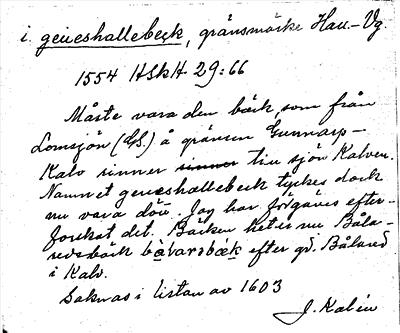 i. geueshallebeck, gränsmärke Hall–Vg.
1554 HSkH 29:66
Måste vara den bäck, som från
Lomsjön (GS.) å gränsen Gunnarp–
Kalv rinner rinner till sjön Kalven.
Namnet geueshallebeck tyckes dock
nu vara dött. Jag har förgäves efter-
forskat det. Bäcken heter nu Båla-
redsbäck bàvarsbæk efter gd. Bålared
i Kalv.
Saknas i listan av 1603
J. Kalén